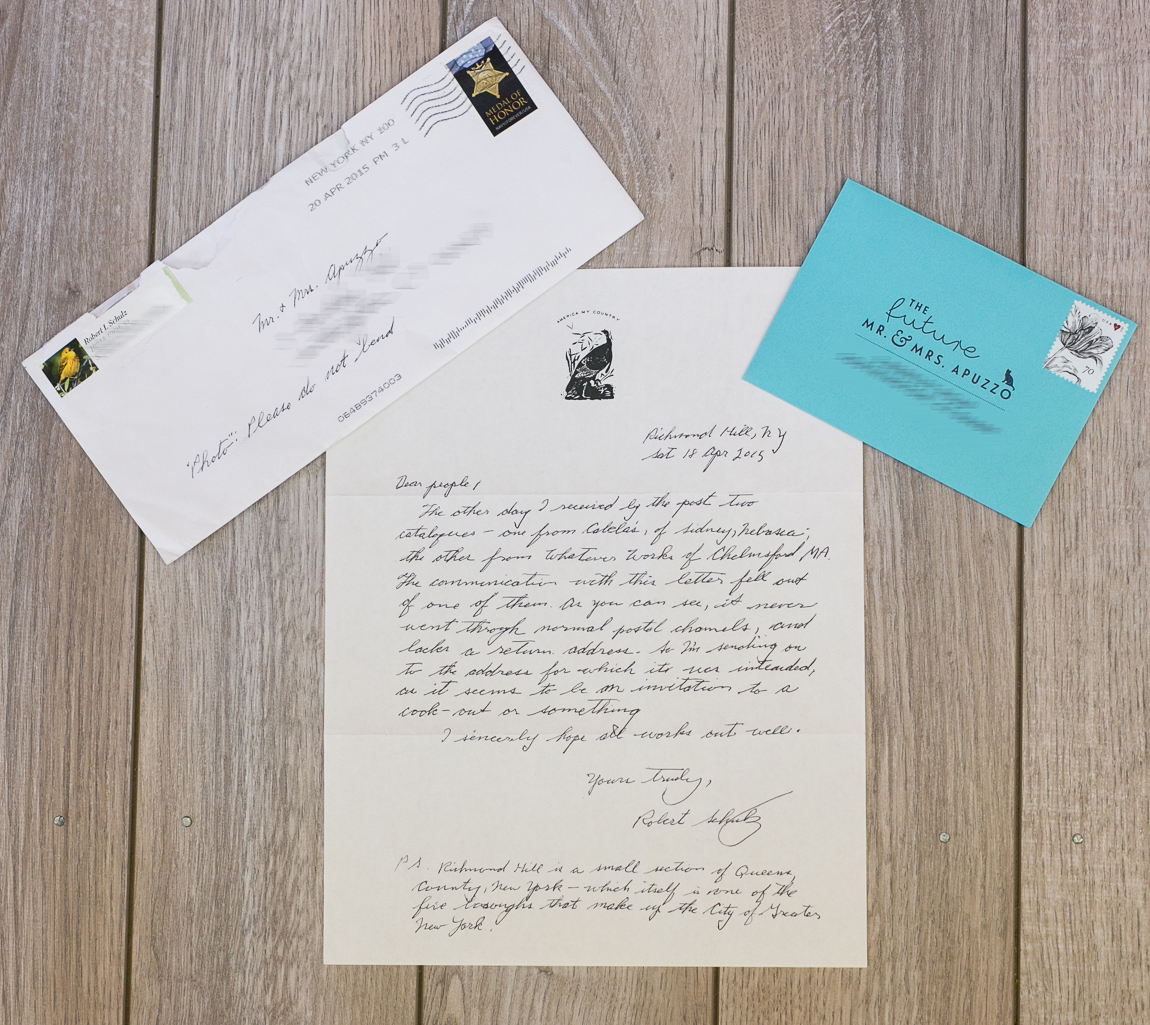 MEDAL OF
HONOR
NEW YORK NY 100
20 APR 2015 PM 3 L
Mr. & Mrs. Apuzzo
Robert I. Schulz
"Photo": Please do not bend
06489374003
THE
future
MR. & MRS. APUZZO
70
AMERICA MY COUNTRY
Richmond Hill, NY
Sat 18 Apr 2015
Dear people,
The other day I received by the post two
catalogues – one from Cabela's, of Sidney, Nebrasca;
the other from Whatever Works of Chelmsford MA.
The communication with this letter fell out
of one of them. As you can see, it never
went through normal postal channels, and
lacks a return address. So I'm sending on
to the address for which its was intended,
as it seems to be an invitation to a
cook-out or something
I sincerely hope all works out well.
Yours truly,
Robert Schulz
P.S. Richmond Hill is a small section of Queens
County, New York – which itself is one of the
five boroughs that make up the City of Greater
New York.